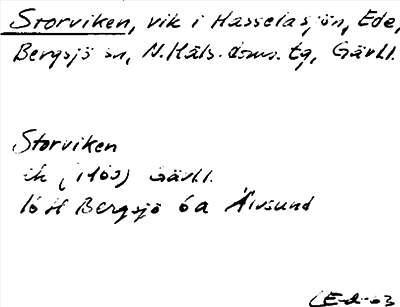 Storviken, vik i Hasselasjön, Ede,
Bergsjö sn, N. Häls. doms. tg, Gävl.
Storviken
ek (1963) Gävl.
16H Bergsjö 6a Älvsund